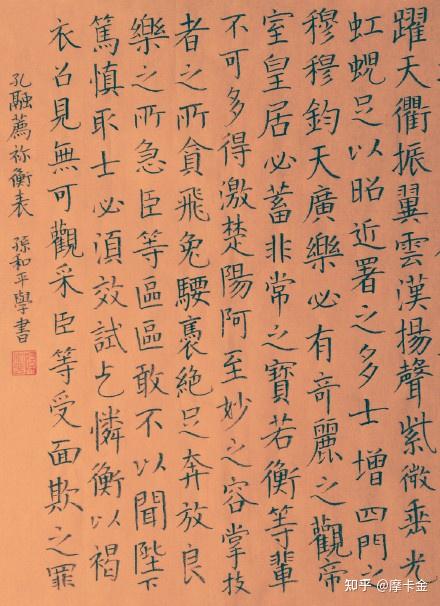 躍天衢振翼雲漢揚聲紫微垂光
虹蜺足以昭近署之多士增四門之
穆穆鈞天廣樂必有竒麗之觀帝
室皇居必蓄非常之寶若衡等輩
不可多得激楚陽阿至妙之容掌技
者之所貪飛兔騕褭絕足奔放良
樂之所急臣等區區敢不以聞陛下
篤慎取士必須效試乞憐衡以褐
衣召見無可觀采臣等受面欺之罪
孔融薦祢衡表 孫和平學書
知乎 @摩卡金